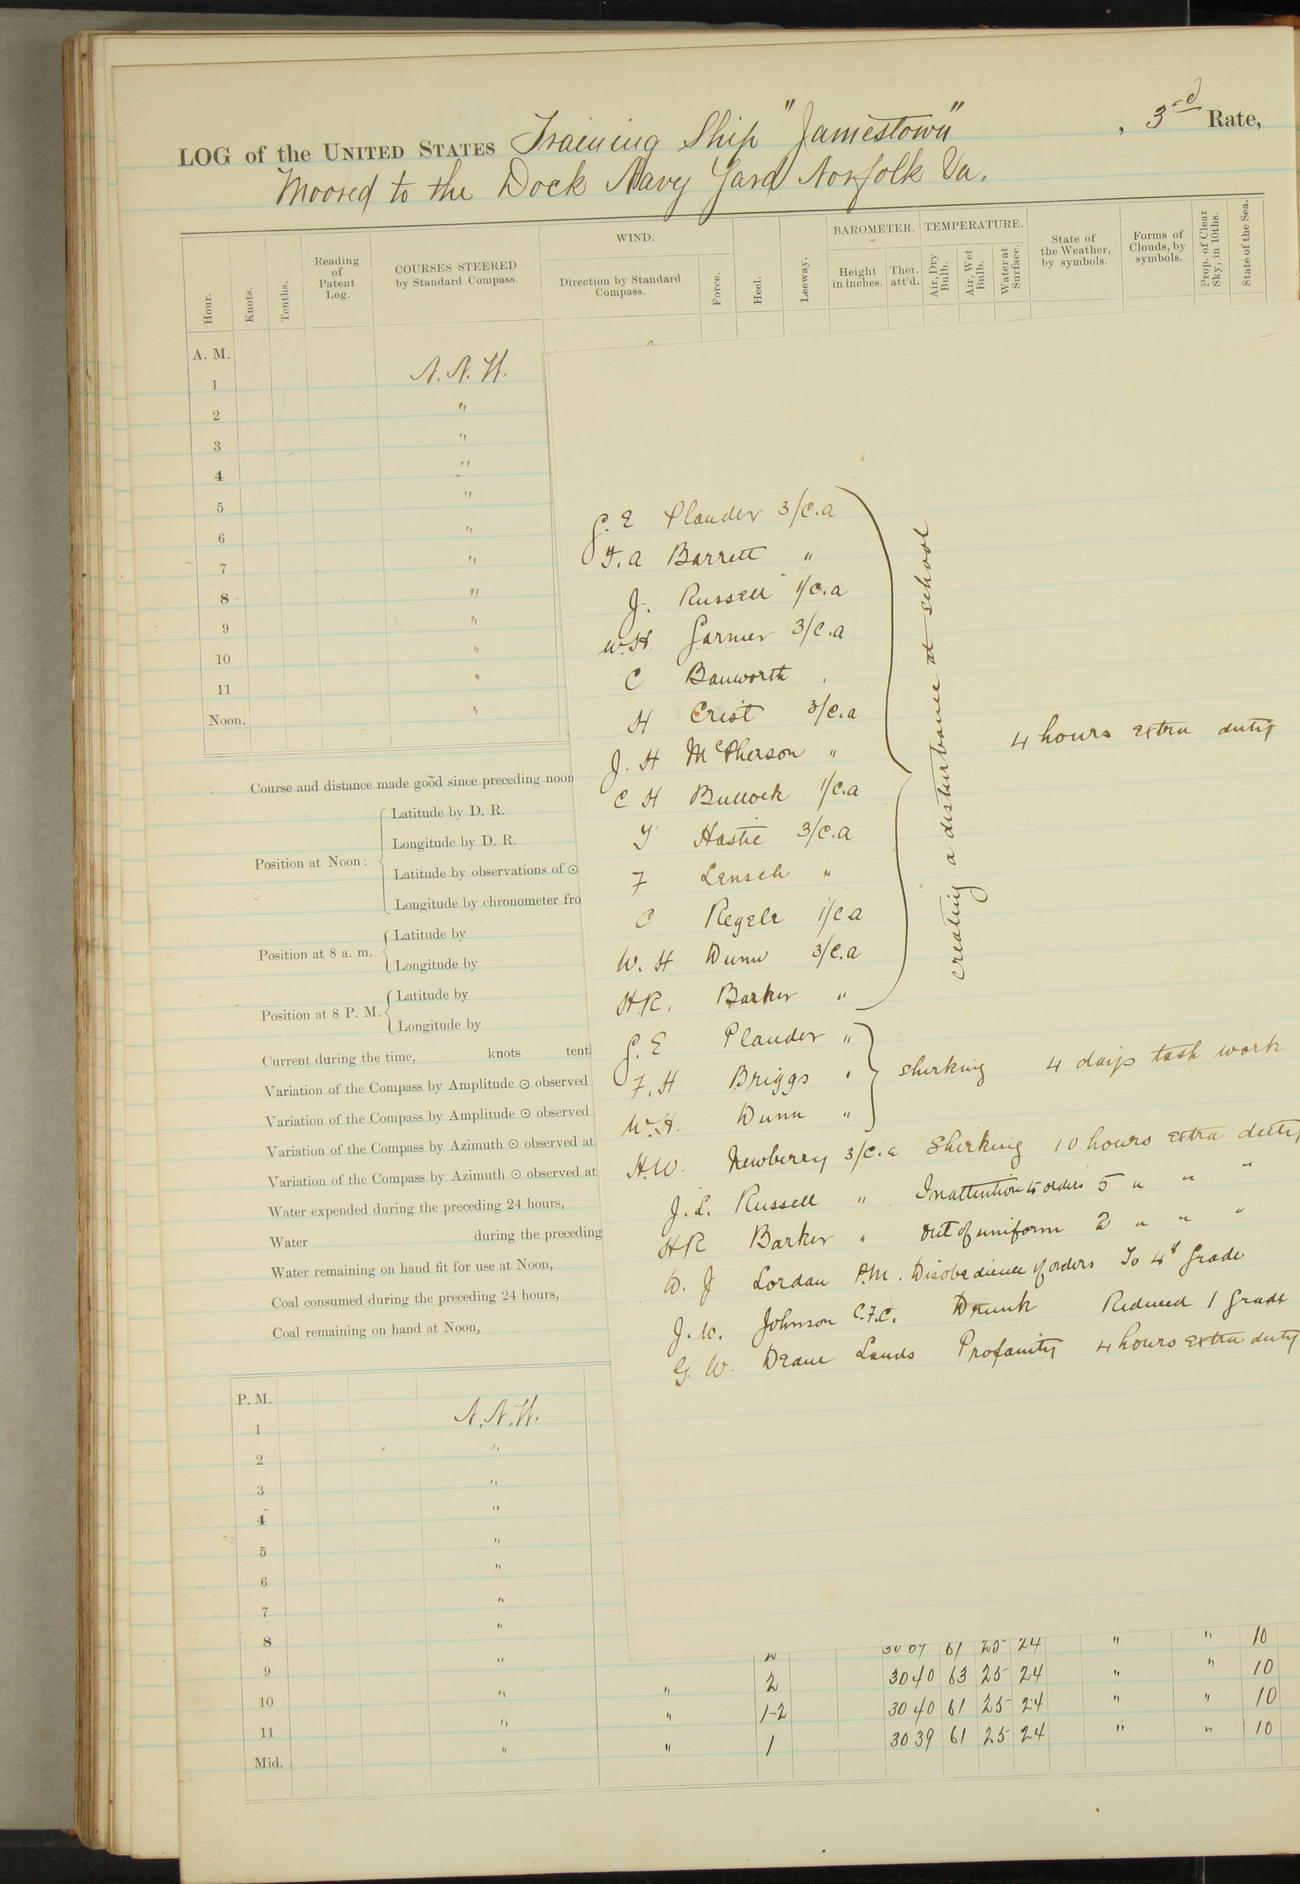 LOG of the UNITED STATES Training Ship "Jamestown", 3rd Rate,
Moored to the Dock Navy Yard Norfolk Va.
Hour.
Knots.
Tenths.
Reading of Patent Log.
COURSES STEERED by Standard Compass.
WIND.
Direction by Standard Compass.
Force.
Heel.
Leeway.
BAROMETER.
Height in inches.
Ther. att'd.
TEMPERATURE.
Air, Dry Bulb.
Air, Wet Bulb.
Water at Surface.
State of the Weather, by symbols.
Forms of Clouds, by symbols.
Prop. of Clear Sky, in 10ths.
State of the Sea.
A. M.
1 N. N. W.
2 "
3 "
4 "
5 "
6 "
7 "
8 "
9 "
10 "
11 "
Noon. "
G. E Plander 3/c.a
F. a Barrett "
J. Russell 1/c.a
W.H. Garmer 3/c.a
C Banworth
H Crist 3/c.a
J. H McPherson "
C H Bullock 1/c.a
Hastie 3/c.a
F Lensch "
C Regele 1/c a
W. H Dunn 3/c.a
H.R. Barker "
creating a disturbance at school
4 hours extra duty
G. E Plander "
F. H Briggs "
W. H. Dunn "
shirking 4 days task work
H.W. Newberry 3/c.a Shirking 10 hours extra duty
J. L. Russell " Inattention to orders 5 " " "
H R Barker " out of uniform 2 " " "
W. J Lordan P.M. Disobedience of orders To 4th Grade
J. W. Johnson C.F.C. Drunk Reduced 1 Grade
G. W. Deane Lands Profanity 4 hours extra duty
Course and distance made good since preceding noon
Position at Noon:
Latitude by D. R.
Longitude by D. R.
Latitude by observations of ⊙
Longitude by chronometer fro
Position at 8 a. m.
Latitude by
Longitude by
Position at 8 P. M.
Latitude by
Longitude by
Current during the time, knots tent
Variation of the Compass by Amplitude ⊙ observed
Variation of the Compass by Amplitude ⊙ observed
Variation of the Compass by Azimuth ⊙ observed at
Variation of the Compass by Azimuth ⊙ observed at
Water expended during the preceding 24 hours,
Water during the preceding
Water remaining on hand fit for use at Noon,
Coal consumed during the preceding 24 hours,
Coal remaining on hand at Noon,
P. M.
1 N. N. W.
2 "
3 "
4 "
5 "
6 "
7 "
8 "
61 25 24 " " 10
9 " 2 30 40 63 25 24 " " 10
10 " " 1-2 30 40 61 25 24 " " 10
11 " " 1 30 39 61 25 24 " " 10
Mid. "